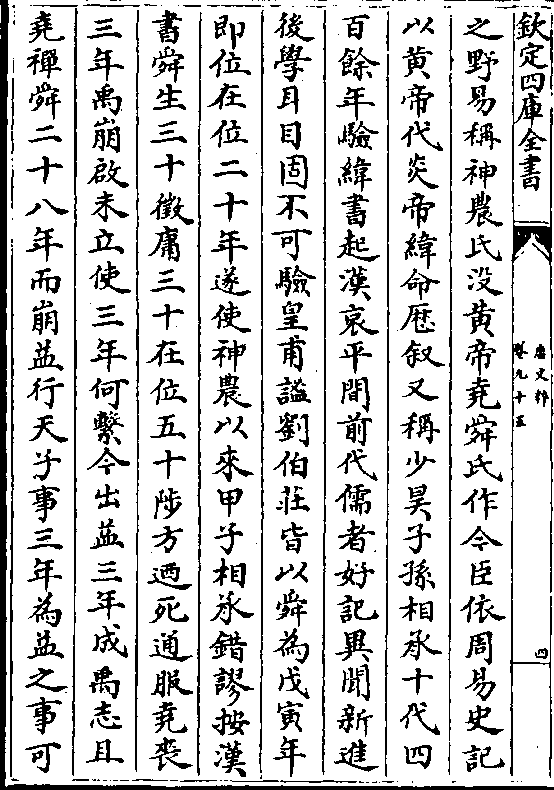 欽定四庫全書
唐文粹
卷九十五
四
之野易稱神農氏没黄帝堯舜氏作今臣依周易史記
以黄帝代炎帝緯命厯叙又稱少昊子孫相承十代四
百餘年驗緯書起漢哀平間前代儒者好記異聞新進
後學耳目固不可驗皇甫謐劉伯莊皆以舜為戊寅年
即位在位二十年遂使神農以來甲子相承錯謬按漢
書舜生三十徵庸三十在位五十陟方廼死通服堯喪
三年禹崩啟未立使三年何繫今出益三年成禹志且
堯禪舜二十八年而崩益行天子事三年為益之事可